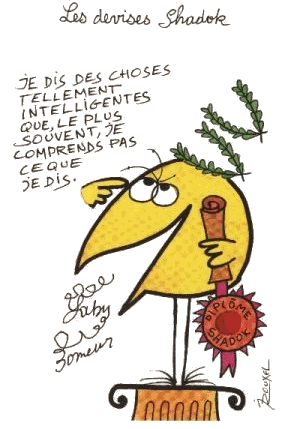 Les devises Shadok
JE DIS DES CHOSES
TELLEMENT
INTELLIGENTES
QUE, LE PLUS
SOUVENT, JE
COMPRENDS PAS
CE QUE
JE DIS.
Gaby
Zomeur
DIPLÔME
SHADOK
J. ROUXEL